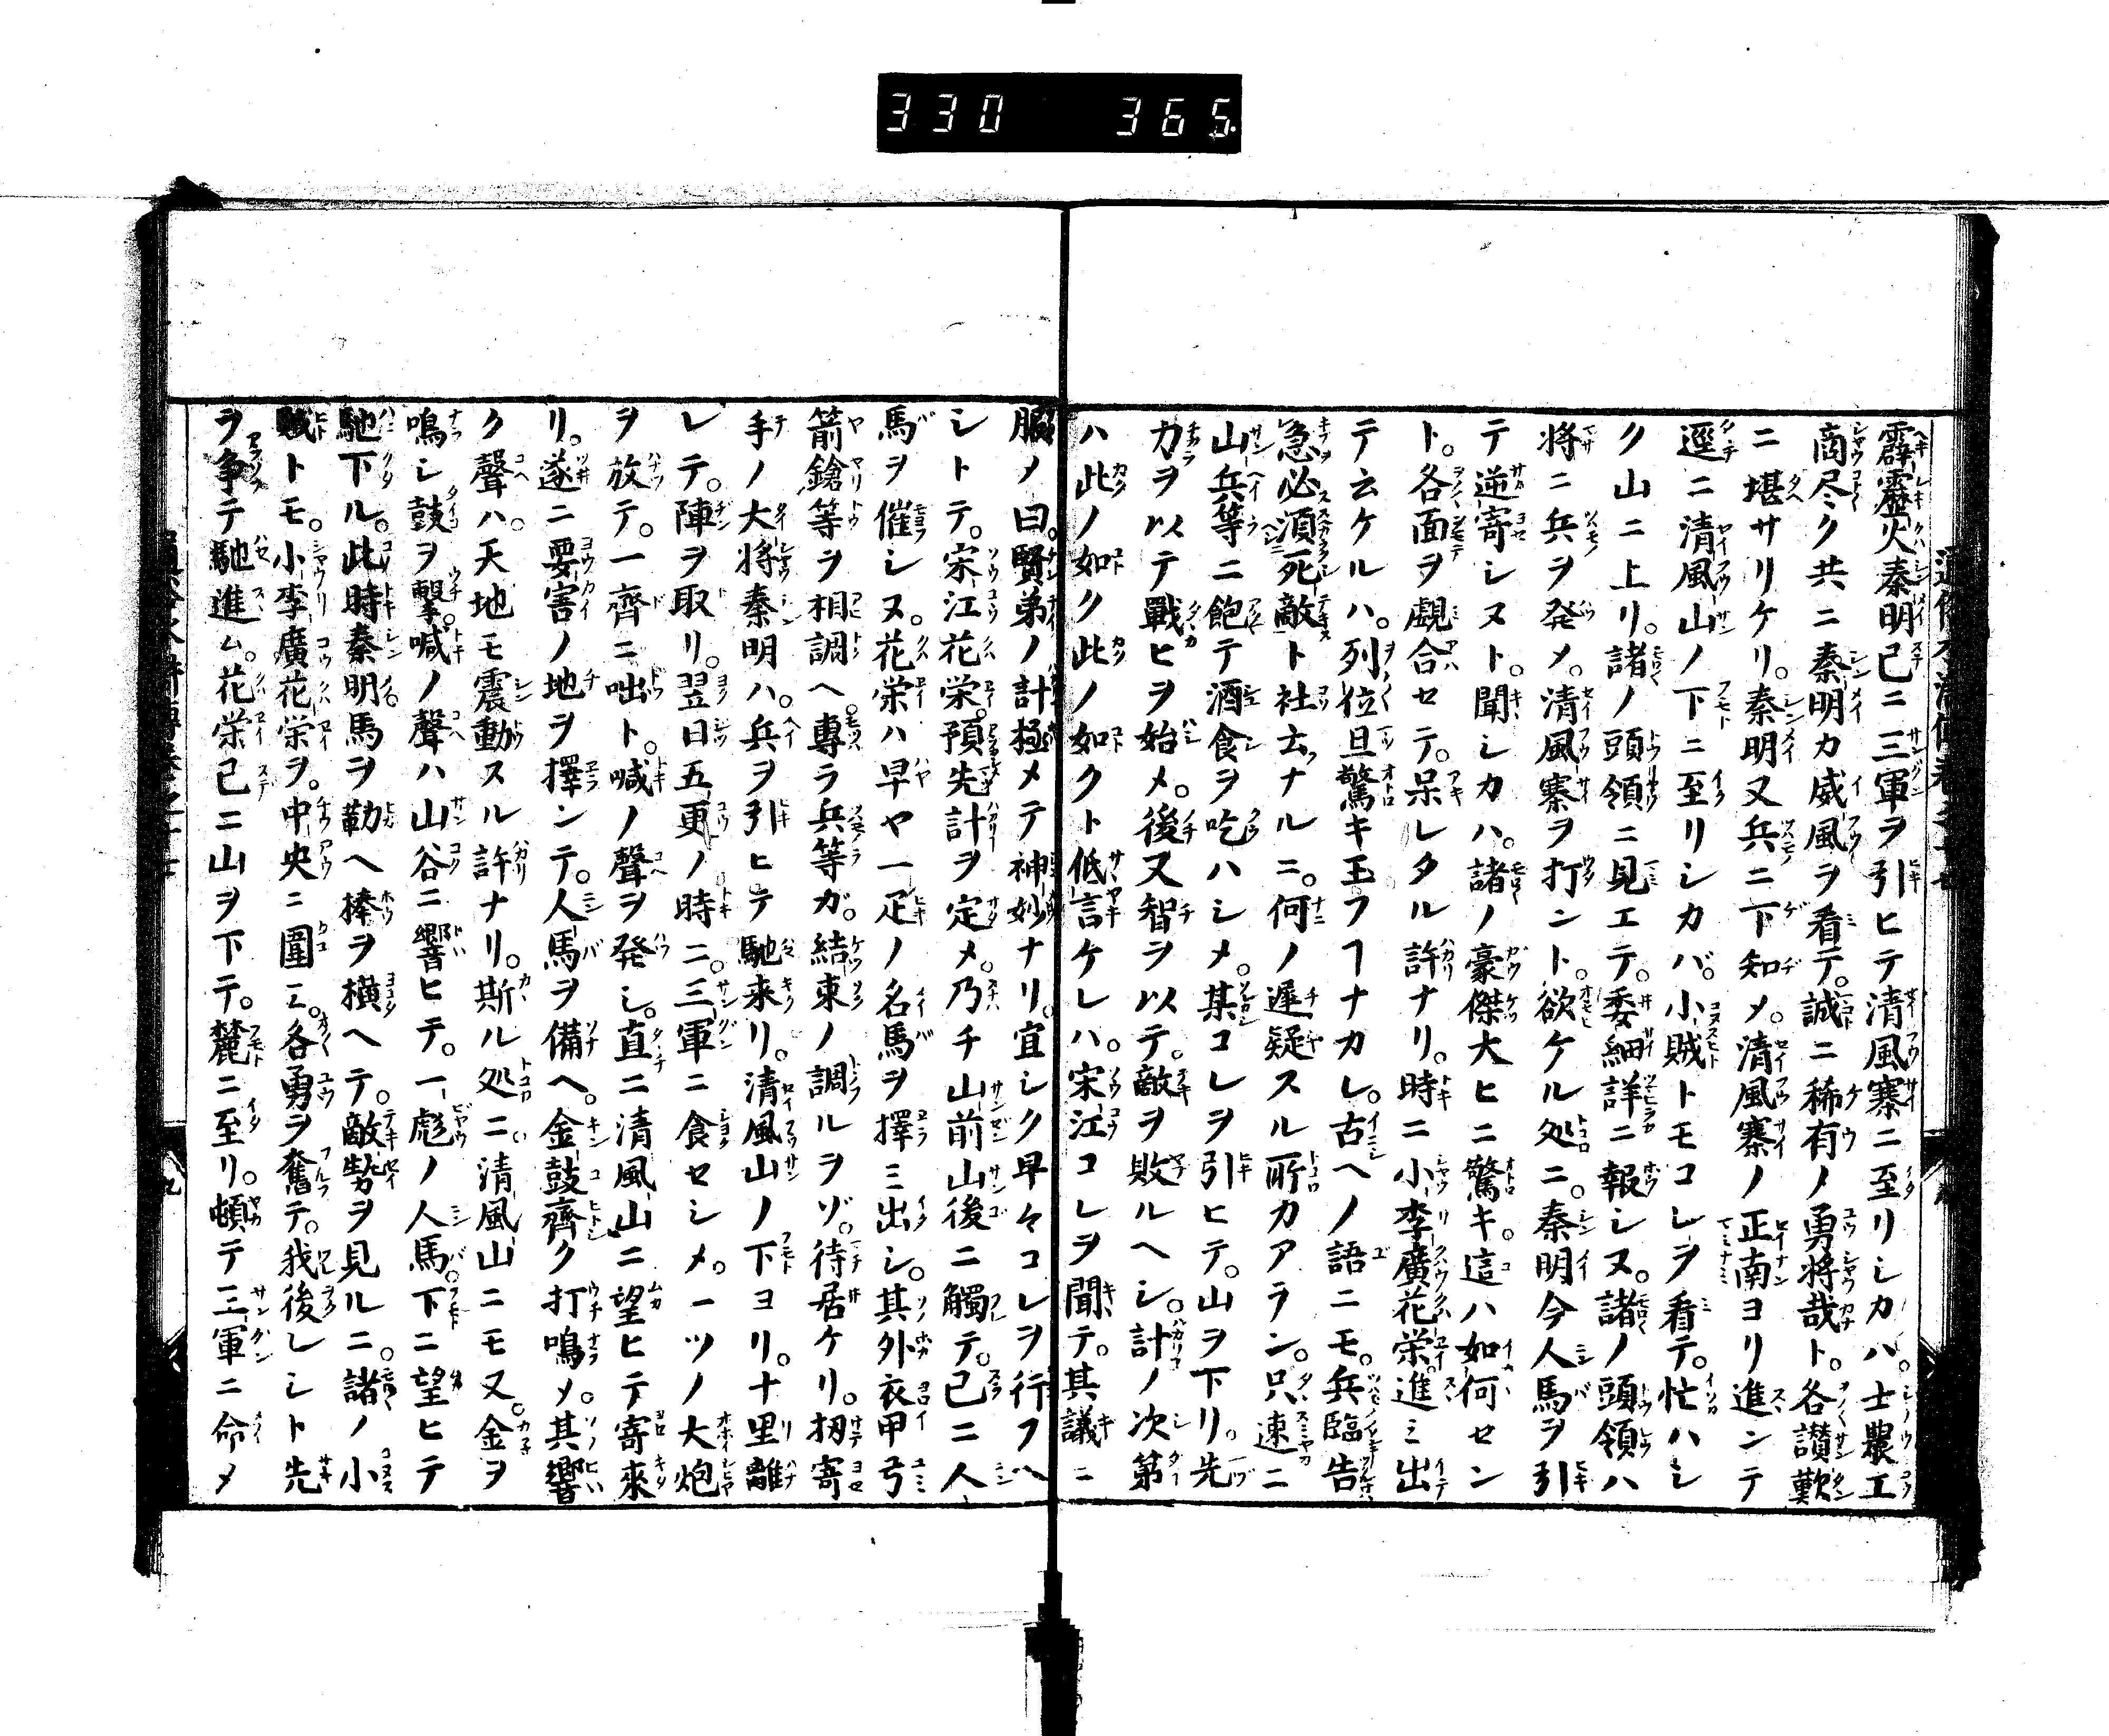 330 365
霹靂火秦明已ニ三軍ヲ引ヒテ清風寨ニ至リシカハ。士農工
商尽ク共ニ秦明カ威風ヲ看テ。誠ニ稀有ノ勇将哉ト。各讃歎
ニ堪サリケリ。秦明又兵ニ下知メ。清風寨ノ正南ヨリ進ンテ
逕ニ清風山ノ下ニ至リシカバ。小賊トモコレヲ看テ。忙ハシ
ク山ニ上リ。諸ノ頭領ニ見エテ。委細詳ニ報シヌ。諸ノ頭領ハ
将ニ兵ヲ発メ。清風寨ヲ打ント。欲ケル処ニ。秦明今人馬ヲ引
テ逆寄シヌト。聞シカハ。諸ノ豪傑大ヒニ驚キ。這ハ如何セン
ト。各面ヲ覷合セテ。呆レタル許ナリ。時ニ小李廣花栄進ミ出
テ云ケルハ。列位且驚キ玉フヿナカレ。古ヘノ語ニモ。兵臨告
急必須死敵ト社士ナルニ。何ノ遲疑スル所カアラン。只速ニ
山兵等ニ飽テ酒食ヲ吃ハシメ。某コレヲ引ヒテ。山ヲ下リ。先
力ヲ以テ戰ヒヲ始メ。後又智ヲ以テ。敵ヲ敗ルヘシ。計ノ次第
ハ此ノ如ク此ノ如クト低言ケレハ。宋江コレヲ聞テ。其議ニ
服メ曰。賢弟ノ計極メテ神妙ナリ。宜シク早々コレヲ行フヘ
シトテ。宋江花栄。預先計ヲ定メ。乃チ山前山後ニ觸テ。已ニ人
馬ヲ催シヌ。花栄ハ早ヤ一疋ノ名馬ヲ擇ミ出シ。其外衣甲弓
箭鎗等ヲ相調ヘ。專ラ兵等ガ。結束ノ調ルヲゾ。待居ケリ。扨寄
手ノ大将秦明ハ。兵ヲ引ヒテ馳来リ。清風山ノ下ヨリ。十里離
レテ。陣ヲ取リ。翌日五更ノ時ニ。三軍ニ食セシメ。一ツノ大炮
ヲ放テ。一齊ニ咄ト。喊ノ聲ヲ発シ。直ニ清風山ニ望ヒテ寄來
リ。遂ニ要害ノ地ヲ擇ンテ。人馬ヲ備ヘ。金鼓齊ク打鳴メ。其響
ク聲ハ。天地モ震動スル許ナリ。斯ル処ニ。清風山ニモ又。金ヲ
鳴シ鼓ヲ擊。喊ノ聲ハ山谷ニ響ヒテ。一彪ノ人馬。下ニ望ヒテ
馳下ル。此時秦明馬ヲ勒ヘ棒ヲ横ヘテ。敵勢ヲ見ルニ。諸ノ小
賊トモ。小李廣花栄ヲ。中央ニ圍ミ。各勇ヲ奮テ。我後レシト先
ヲ争テ馳進ム。花栄已ニ山ヲ下テ。麓ニ至リ。頓テ三軍ニ命メ
九